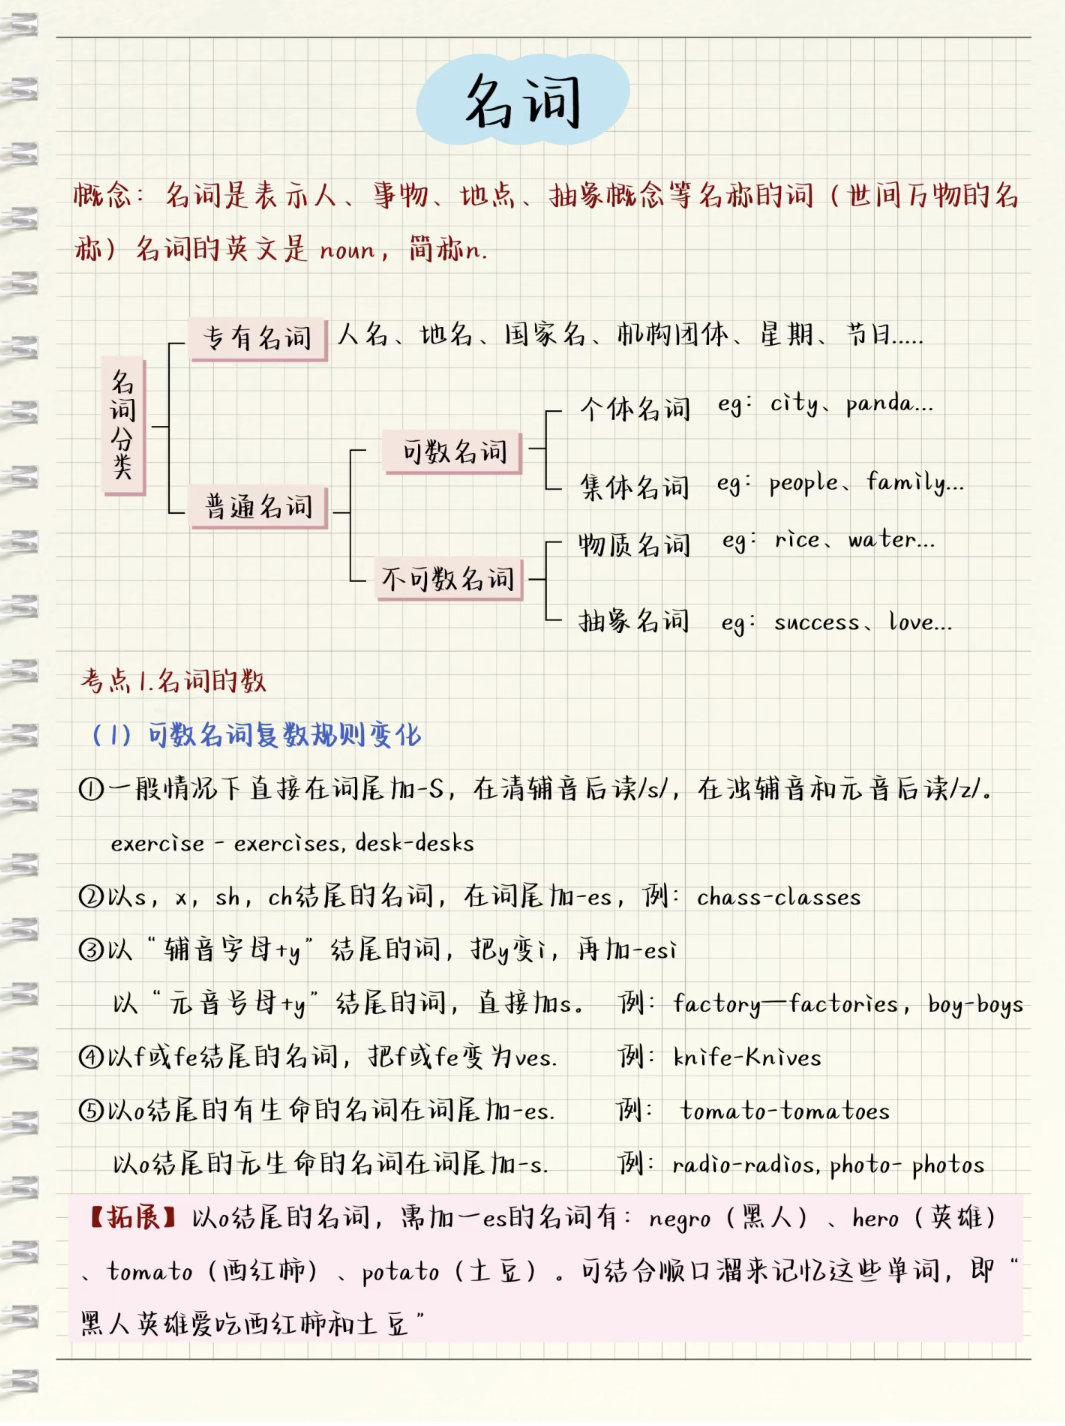 名词
概念：名词是表示人、事物、地点、抽象概念等名称的词（世间万物的名
称）名词的英文是 noun，简称n.
名词分类
专有名词 人名、地名、国家名、机构团体、星期、节日.....
普通名词
可数名词
个体名词 eg：city、panda...
集体名词 eg：people、family...
不可数名词
物质名词 eg：rice、water...
抽象名词 eg：success、love...
考点1.名词的数
（1）可数名词复数规则变化
①一般情况下直接在词尾加-S，在清辅音后读/s/，在浊辅音和元音后读/z/。
exercise - exercises, desk-desks
②以s，x，sh，ch结尾的名词，在词尾加-es，例：chass-classes
③以“辅音字母+y”结尾的词，把y变i，再加-esi
以“元音号母+y”结尾的词，直接加s。 例：factory—factories，boy-boys
④以f或fe结尾的名词，把f或fe变为ves. 例：knife-Knives
⑤以o结尾的有生命的名词在词尾加-es. 例：tomato-tomatoes
以o结尾的无生命的名词在词尾加-s. 例：radio-radios, photo- photos
【拓展】以o结尾的名词，需加一es的名词有：negro（黑人）、hero（英雄）
、tomato（西红柿）、potato（土豆）。可结合顺口溜来记忆这些单词，即“
黑人英雄爱吃西红柿和土豆”